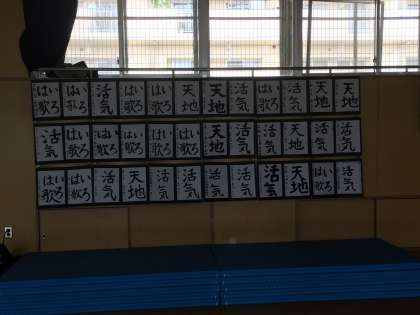 いろは歌 いろは歌 活気 いろは歌 いろは歌 天地 天地 活気 いろは歌 活気 天地 天地
活気 いろは歌 いろは歌 いろは歌 いろは歌 いろは歌 天地 活気 活気 天地 活気 活気
いろは歌 いろは歌 活気 天地 活気 活気 活気 活気 活気 天地 いろは歌 活気